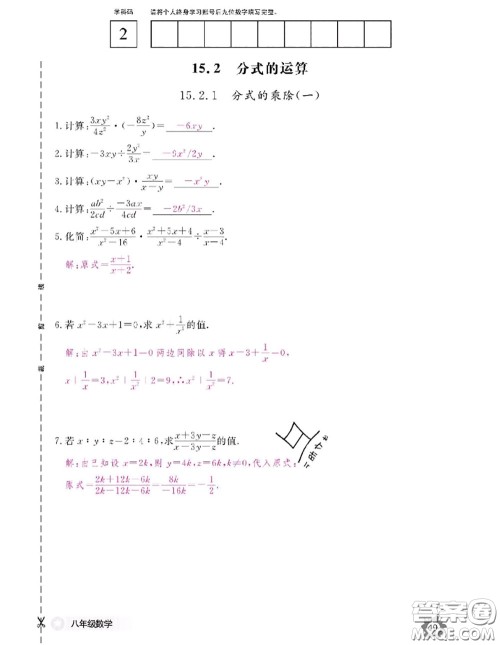 学科码 请将个人终身学习账号后九位数字填写完整。
2
15.2 分式的运算
15.2.1 分式的乘除(一)
1.计算:3xy²/4z²·(-8z²/y)= -6xy .
2.计算:-3xy÷2y²/3x= -9x²/2y .
3.计算:(xy-x²)·xy/(x-y)= -x²y .
4.计算:ab²/2cd÷-3ax/4cd= -2b²/3x .
5.化简:(x²-5x+6)/(x²-16)·(x²+5x+4)/(x²-4)÷(x-3)/(x-4).
解:原式=(x+1)/(x+2).
6.若x²-3x+1=0,求x²+1/x²的值.
解:由x²-3x+1=0两边同除以x得x-3+1/x=0,
x+1/x=3,x²+1/x²+2=9,∴x²+1/x²=7.
7.若x:y:z=2:4:6,求(x+3y-z)/(x-3y-z)的值.
解:由已知设x=2k,则y=4k,z=6k,k≠0,代入原式:
原式=(2k+12k-6k)/(2k-12k-6k)=8k/-16k=-1/2.
八年级数学
答案圈
MXQE.COM